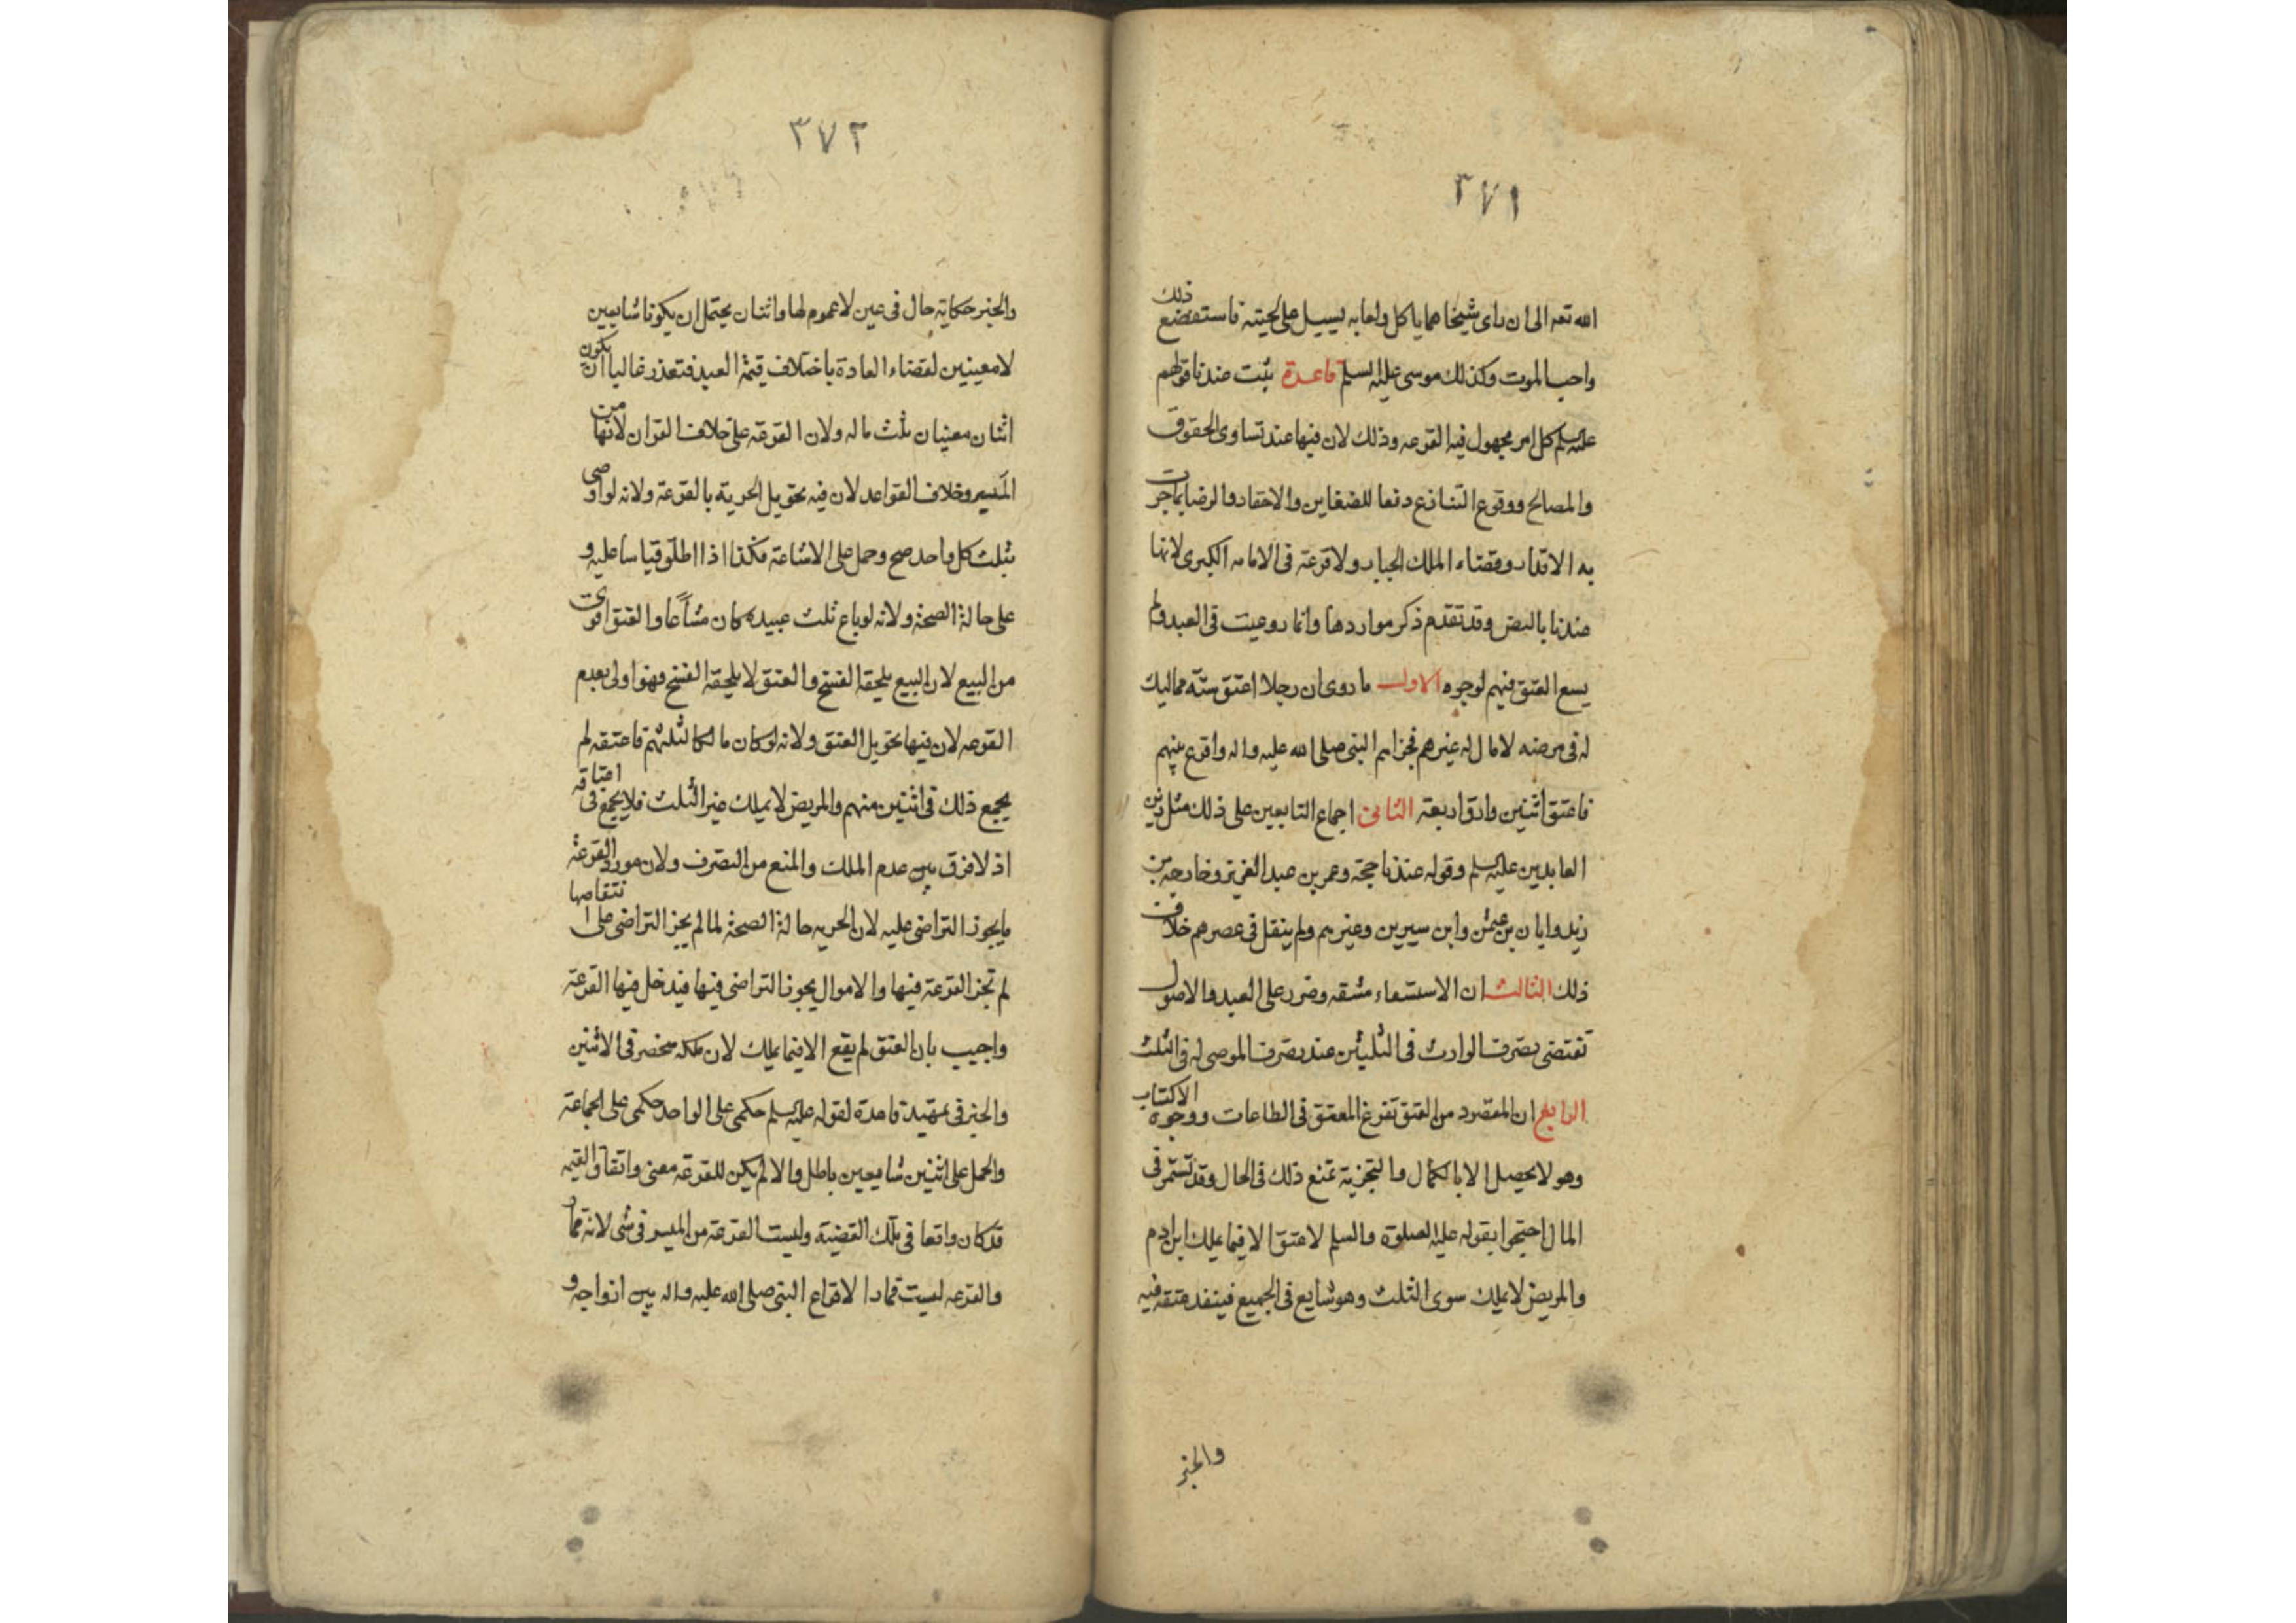 ٣٧١
الله تعه الى ان راى شيخا هما ياكل ولعابه يسيل على لحيته فاستفضع ذلك
واحب الموت وكذلك موسى عليه السلم قاعدة ثبت عندنا قولهم
عليهم السلم كل امر مجهول فيه القرعه وذلك لان فيها عند تساوى الحقوق
والمصالح ووقوع التنازع دفعا للضغاين والاحقاد والرضا بما جرت
به الاقدار وقضاء الملك الجبار ولا قرعة فى الامامه الكبرى لانها
عندنا بالنص وقد تقدم ذكر مواردها وانما روعيت فى العبد ولم
يسع العتق فيهم لوجوه الاول ما روى ان رجلا اعتق ستة مماليك
له فى مرضه لا مال له غيرهم فجزاهم النبى صلى الله عليه واله واقرع بينهم
فاعتق اثنين وارق اربعة الثانى اجماع التابعين على ذلك مثل زين
العابدين عليه السلم وقوله عندنا حجة وعمر بن عبد العزيز وخارجة بن
زيد وابان بن عثمن وابن سيرين وغيرهم ولم ينقل فى عصرهم خلاف
ذلك الثالث ان الاستسعاء مشقه وضرر على العبد والاصول
تقتضى تصرف الوارث فى الثلثين عند تصرف الموصى له فى الثلث
الرابع ان المقصود من العتق تفرغ المعتق فى الطاعات ووجوه الاكتساب
وهو لا يحصل الا بالكمال والتجزية تمنع ذلك فى الحال وقد تستمر فى
المال احتجوا بقوله عليه الصلوة والسلم لا عتق الا فيما يملك ابن ادم
والمريض لا يملك سوى الثلث وهو شايع فى الجميع فينفذ عتقه فيه
والخبر
٣٧٢
والخبر حكاية حال فى عين لا عموم لها واثنان يحتمل ان يكونا شايعين
لا معينين لقضاء العادة باختلاف قيمة العبيد فتعذر غالبا ان يكون
اثنان معنيان ثلث ماله ولان القرعه على خلاف القران لانها من
الميسر وخلاف القواعد لان فيه تحويل الحرية بالقرعة ولانه لو اوصى
بثلث كل واحد صح وحمل على الاشاعة فكذا اذا اطلق قياسا عليه و
على حالة الصحة ولانه لو باع ثلث عبيده كان مشاعا والعتق اقوى
من البيع لان البيع يلحقه الفسخ والعتق لا يلحقه الفسخ فهو اولى بعدم
القرعه لان فيها تحويل العتق ولانه لو كان مالكا لثلثهم فاعتقه لم
يجمع ذلك فى اثنين منهم والمريض لا يملك غير الثلث فلا يجمع فى اعتاقه
اذ لا فرق بين عدم الملك والمنع من التصرف ولان مورد القرعة
ما يجوز التراضى عليه لان الحريه حالة الصحة لما لم يجز التراضى على انتقاصها
لم تجز القرعة فيها والاموال يجوز التراضى فيها فيدخل فيها القرعة
واجيب بان العتق لم يقع الا فيما يملك لان ملكه منحصر فى الاثنين
والخبر فى تمهيد قاعدة لقوله عليه السلم حكمى على الواحد حكمى على الجماعة
والحمل على اثنين شايعين باطل والا لم يكن للقرعة معنى واتفاق القيمه
قد كان واقعا فى تلك القضية وليست القرعة من الميسر فى شى لانه قمار
والقرعه ليست قمارا لاقراع النبى صلى الله عليه واله بين ازواجه و